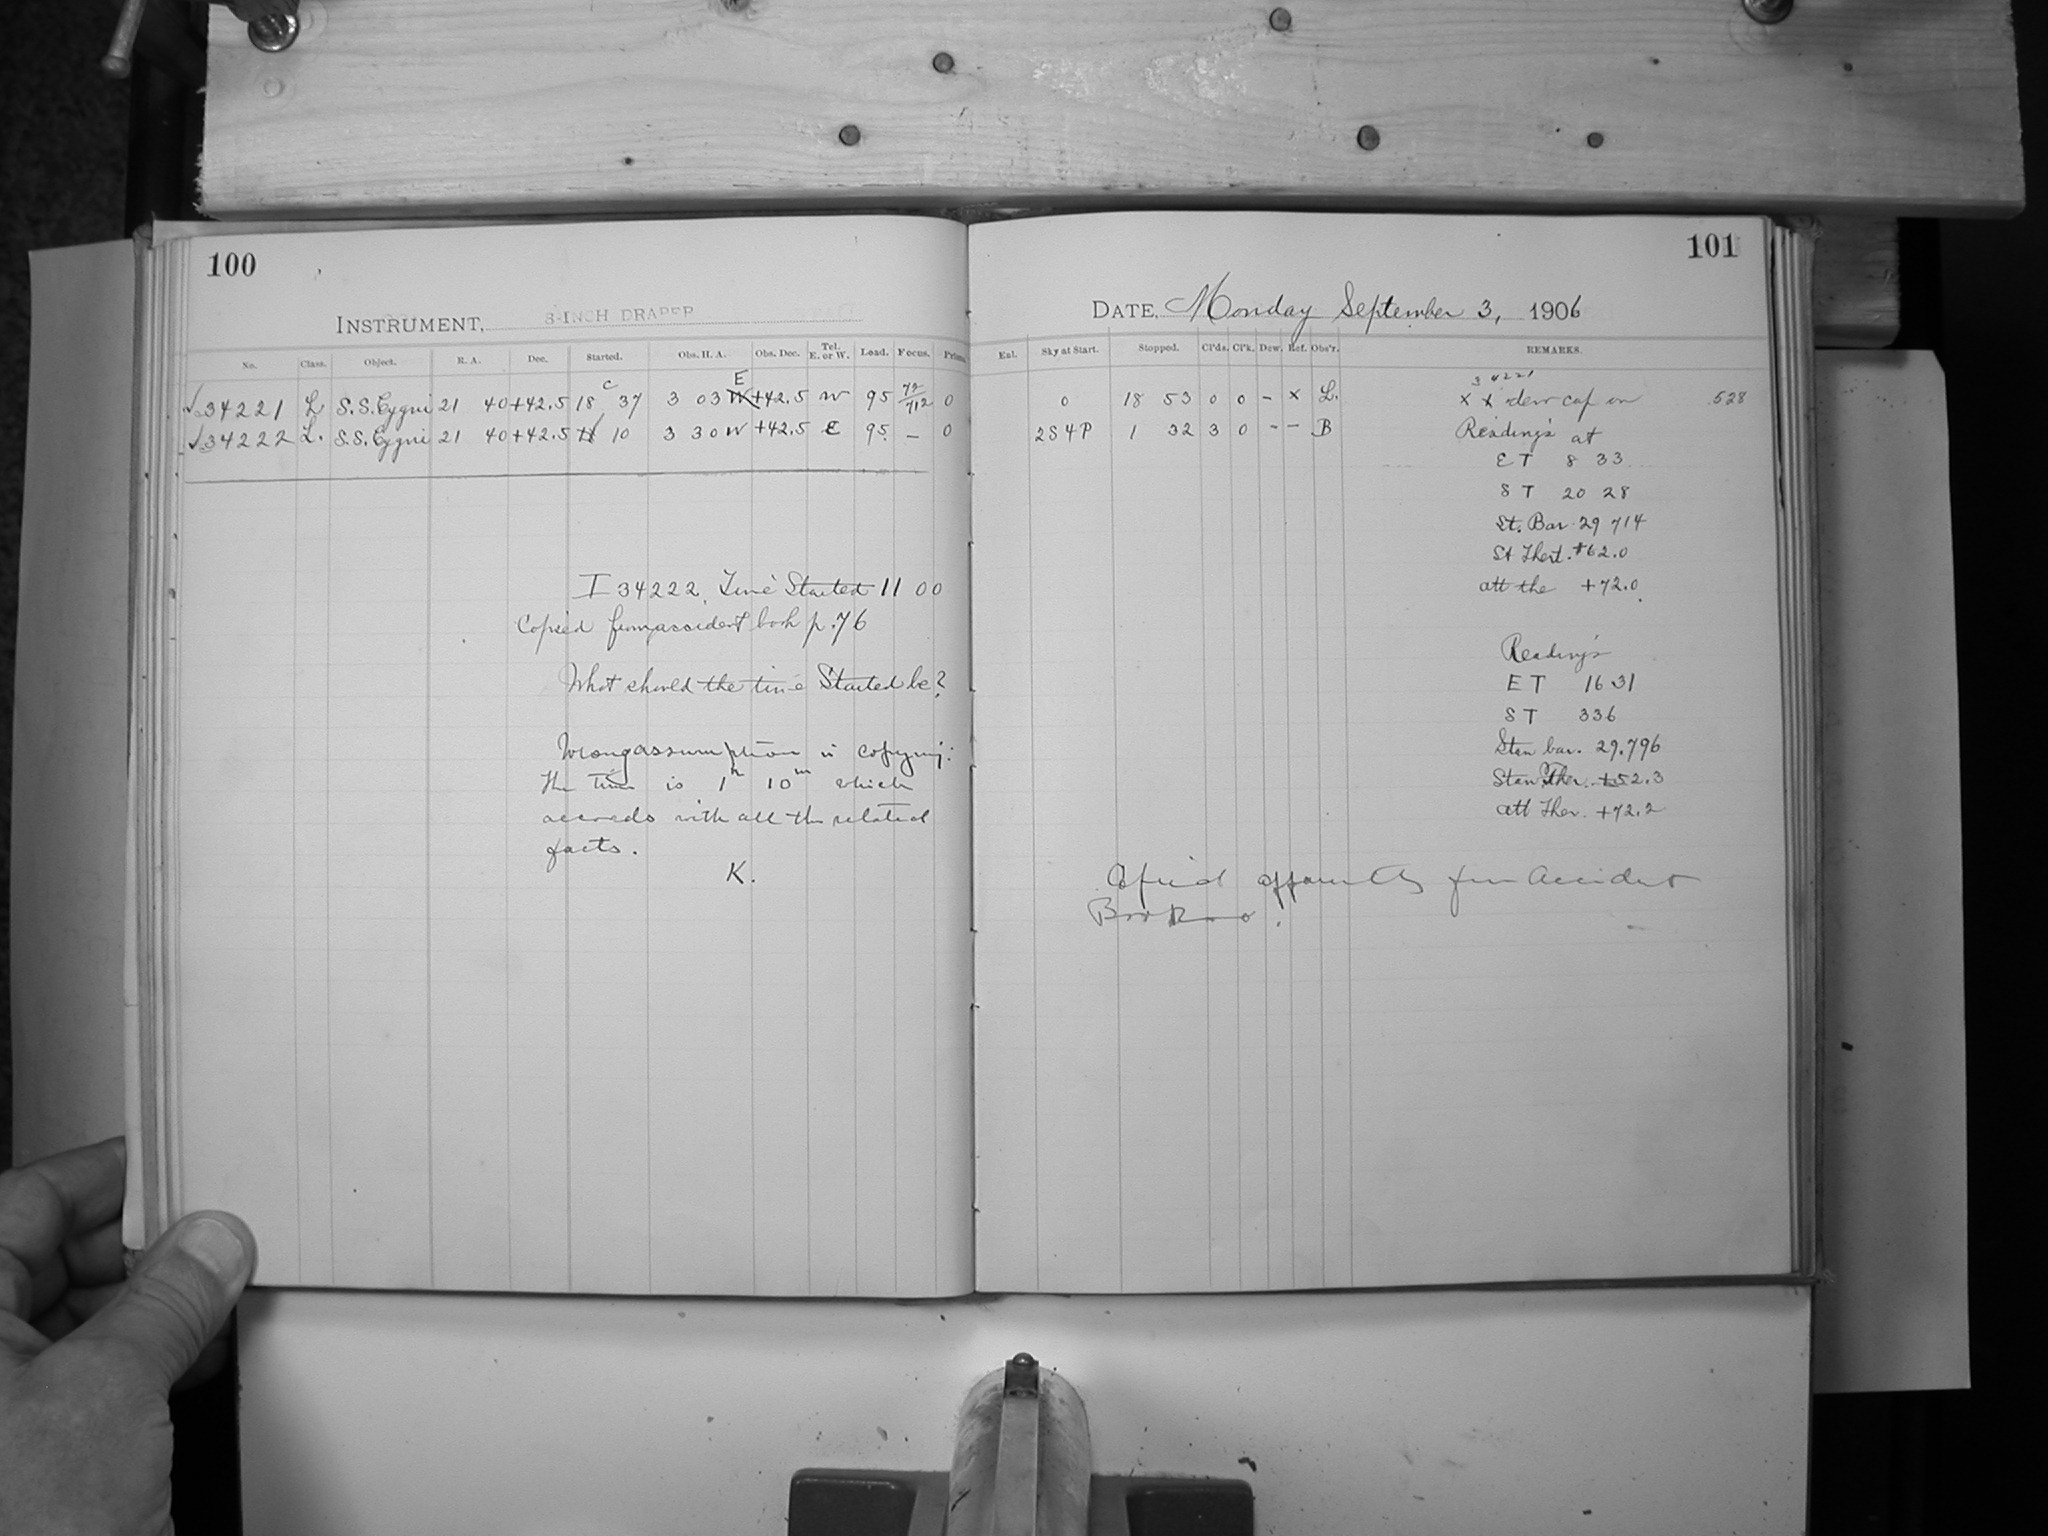 100
INSTRUMENT, 8-INCH DRAPER
No. Class. Object. R. A. Dec. Started. Obs. H. A. Obs. Dec. Tel. E. or W. Load. Focus. Prism.
√34221 L S.S. Cygni 21 40 +42.5 18 37 3 03 E W +42.5 W 95 72/712 0
√34222 L. S.S. Cygni 21 40 +42.5 10 3 30 W +42.5 E 95 – 0
I 34222, Time Started 11 00
Copied from assident book p. 76
What should the time Started be?
Wrong assumption in copying:
the time is 1h 10m which
accords with all the related
facts.
K.
101
DATE, Monday September 3, 1906
Eal. Sky at Start. Stopped. Cl'ds. Cl'k. Dew. Ref. Obs'r. REMARKS.
34221
0 18 53 0 0 – x L. x x dew cap on 528
2S4P 1 32 3 0 – – B Reading's at
ET 8 33
ST 20 28
St. Bar. 29 714
St Thert. +62.0
att the +72.0
Reading's
ET 16 31
ST 3 36
Stan bar. 29.796
Stan Ther. +52.3
att Ther. +72.2
Copied apparently from Accident